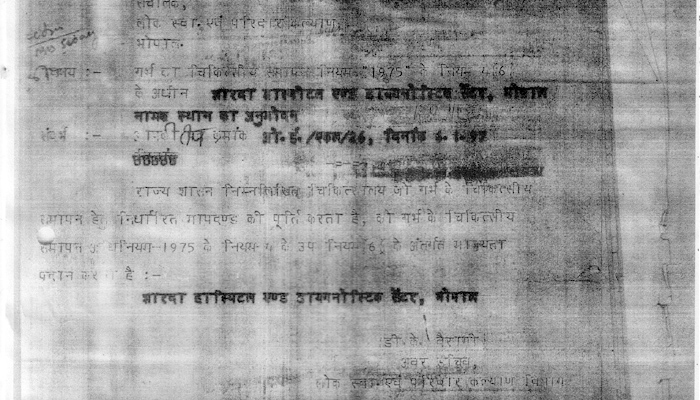 संचालक,
लोक स्वा. एवं परिवार कल्याण,
भोपाल.
विषय :- गर्भ का चिकित्सीय समापन नियम "1975" के नियम 4 6
के अधीन शारदा हास्पीटल एण्ड डायग्नोस्टिक सेंटर, भोपाल
नामक स्थान का अनुमोदन
संदर्भ :- क्रमांक दिनांक
राज्य शासन निम्नलिखित चिकित्सालय जो गर्भ के चिकित्सीय
समापन हेतु निर्धारित मापदण्ड की पूर्ति करता है, को गर्भ के चिकित्सीय
समापन अधिनियम-1975 के नियम-4 के उप नियम 6 के अंतर्गत मान्यता
प्रदान करता है :-
शारदा हास्पिटल एण्ड डायगनोस्टिक सेंटर, भोपाल
डी. के.
अवर सचिव,
लोक स्वा. एवं परिवार कल्याण विभाग